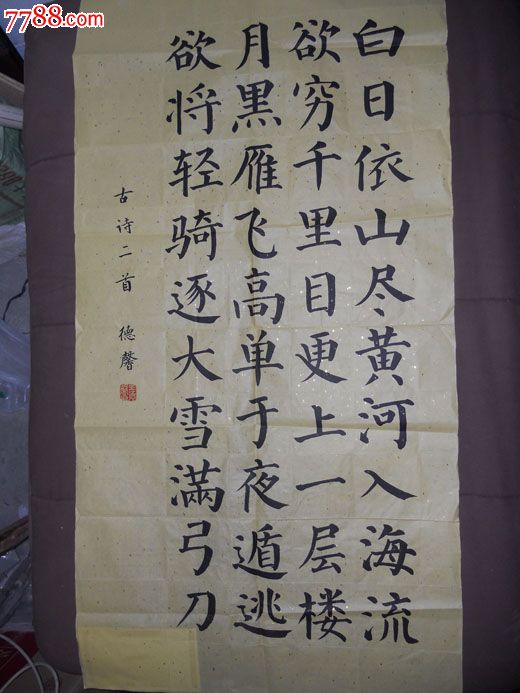 7788.com
白日依山尽黄河入海流
欲穷千里目更上一层楼
月黑雁飞高单于夜遁逃
欲将轻骑逐大雪满弓刀
古诗二首 德馨